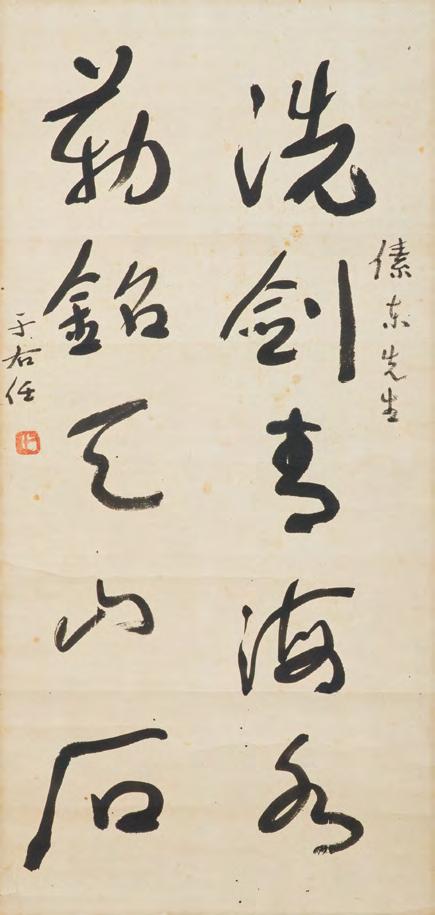 傃东先生
洗剑青海水
勒銘天山石
于右任